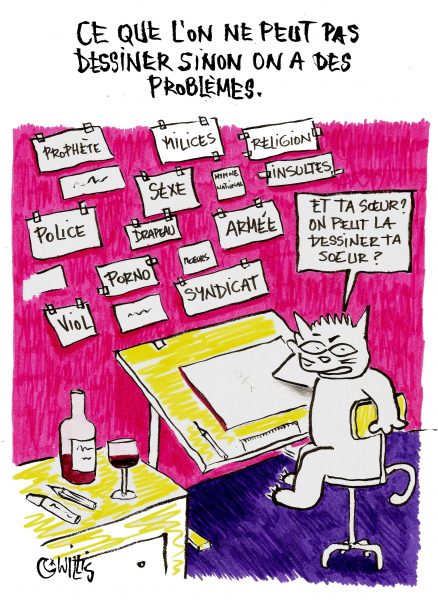 CE QUE L'ON NE PEUT PAS
DESSINER SINON ON A DES
PROBLÈMES.
PROPHÈTE
MILICES
RELIGION
SEXE
HYMNE
NATIONAL
INSULTES
POLICE
DRAPEAU
ARMÉE
PORNO
MŒURS
SYNDICAT
VIOL
ET TA SŒUR?
ON PEUT LA
DESSINER TA
SOEUR ?
WILLIS